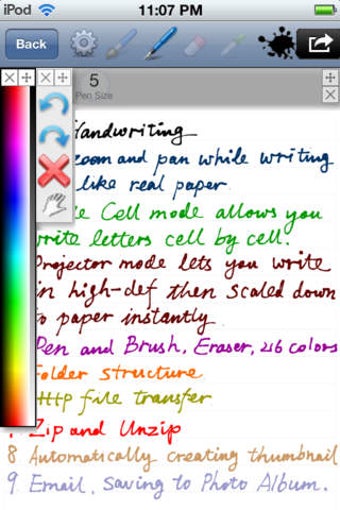 iPod 11:07 PM
Back
5
Pen Size
Handwriting
zoom and pan while writing
like real paper
Cell mode allows you
write letters cell by cell.
Projector mode lets you write
in high-def then scaled down
to paper instantly
Pen and Brush, Eraser, 216 colors
Folder structure
Http file transfer
Zip and Unzip
8 Automatically creating thumbnail
9 Email, Saving to Photo Album.